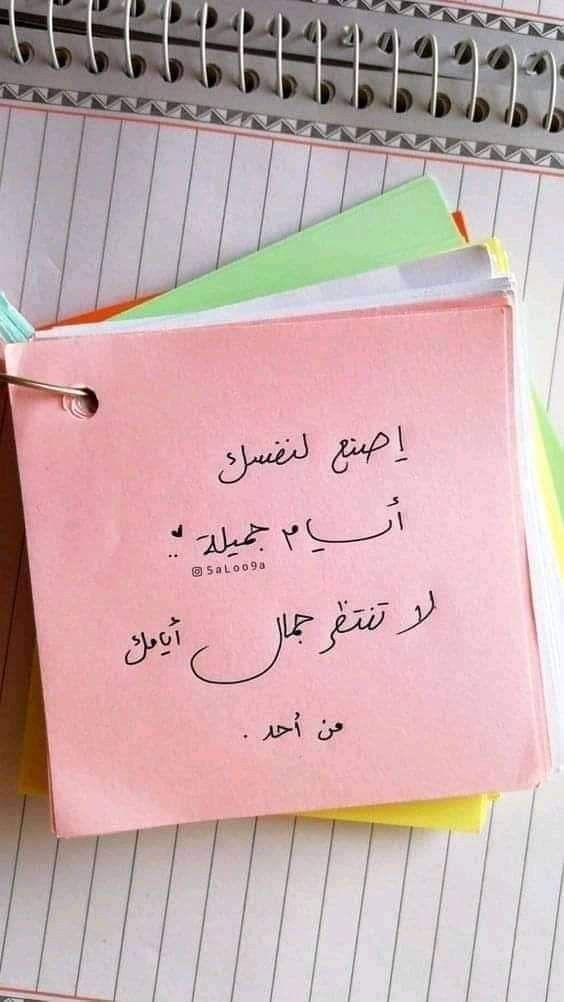 إصنع لنفسك
أيام جميلة
@5aLoo9a
لا تنتظر جمال أيامك
من أحد .